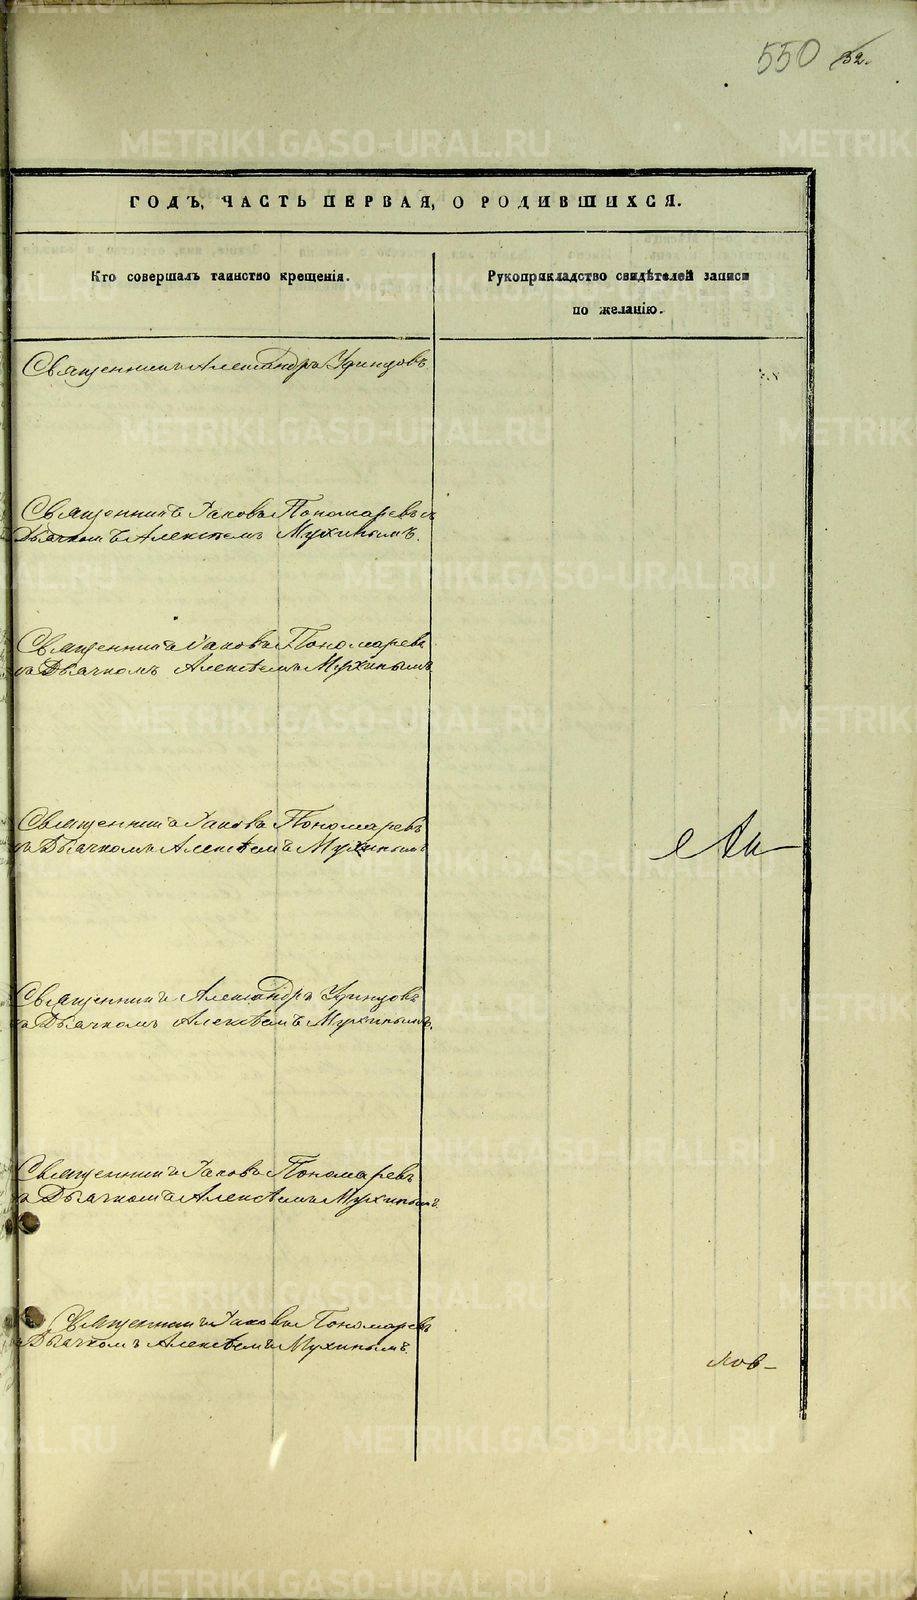 550 32.
ГОДЪ, ЧАСТЬ ПЕРВАЯ, О РОДИВШИХСЯ.
Кто совершалъ таинство крещенія.
Рукоприкладство свидѣтелей записи
по желанію.
Священникъ Александръ Удинцовъ
Священникъ Іаковъ Пономаревъ съ
Дьячкомъ Алексѣемъ Мухинымъ.
Священникъ Іаковъ Пономаревъ
съ Дьячкомъ Алексѣемъ Мухинымъ
Священникъ Іаковъ Пономаревъ
съ Дьячкомъ Алексѣемъ Мухинымъ
Священникъ Александръ Удинцовъ
съ Дьячкомъ Алексѣемъ Мухинымъ.
Священникъ Іаковъ Пономаревъ
съ Дьячкомъ Алексѣемъ Мухинымъ.
Священникъ Іаковъ Пономаревъ
съ Дьячкомъ Алексѣемъ Мухинымъ.
лов-
METRIKI.GASO-URAL.RU